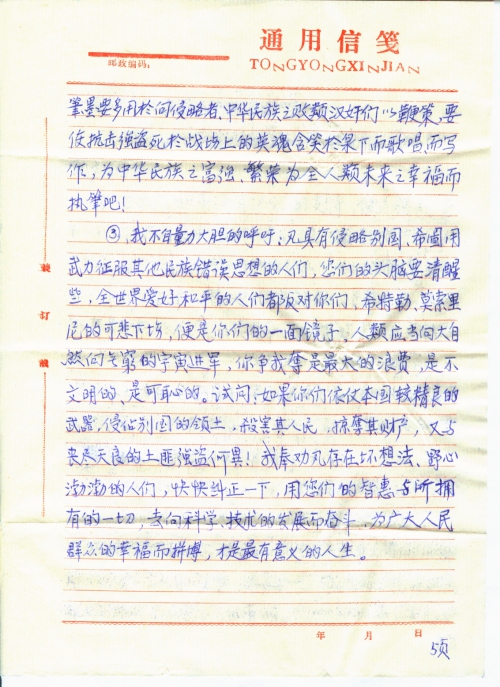 通用信笺
邮政编码：
TONGYONGXINJIAN
筆墨要多用於向侵略者、中华民族之败类汉奸们以鞭策，要
使抗击强盗死於战场上的英魂含笑於泉下而歌唱、而写
作，为中华民族之富强、繁荣为全人类未来之幸福而
执筆吧！
③、我不自量力大胆的呼吁：凡具有侵略别国、希图用
武力征服其他民族错误思想的人们，您们的头脑要清醒
些，全世界爱好和平的人们都反对你们、希特勒、莫索里
尼的可悲下场，便是你们的一面镜子，人类应当向大自
然向无穷的宇宙进军，你争我夺是最大的浪费，是不
文明的、是可耻的。试问：如果你们依仗本国较精良的
武器，侵佔别国的领土，殺害其人民，掠夺其财产，又与
丧尽天良的土匪强盗何異！我奉劝凡存在坏想法、野心
渤渤的人们，快快纠正一下，用您们的智惠与所拥
有的一切，去向科学、技术的发展而奋斗，为广大人民
群众的幸福而拼博，才是最有意义的人生。
装
订
线
年 月 日
5页